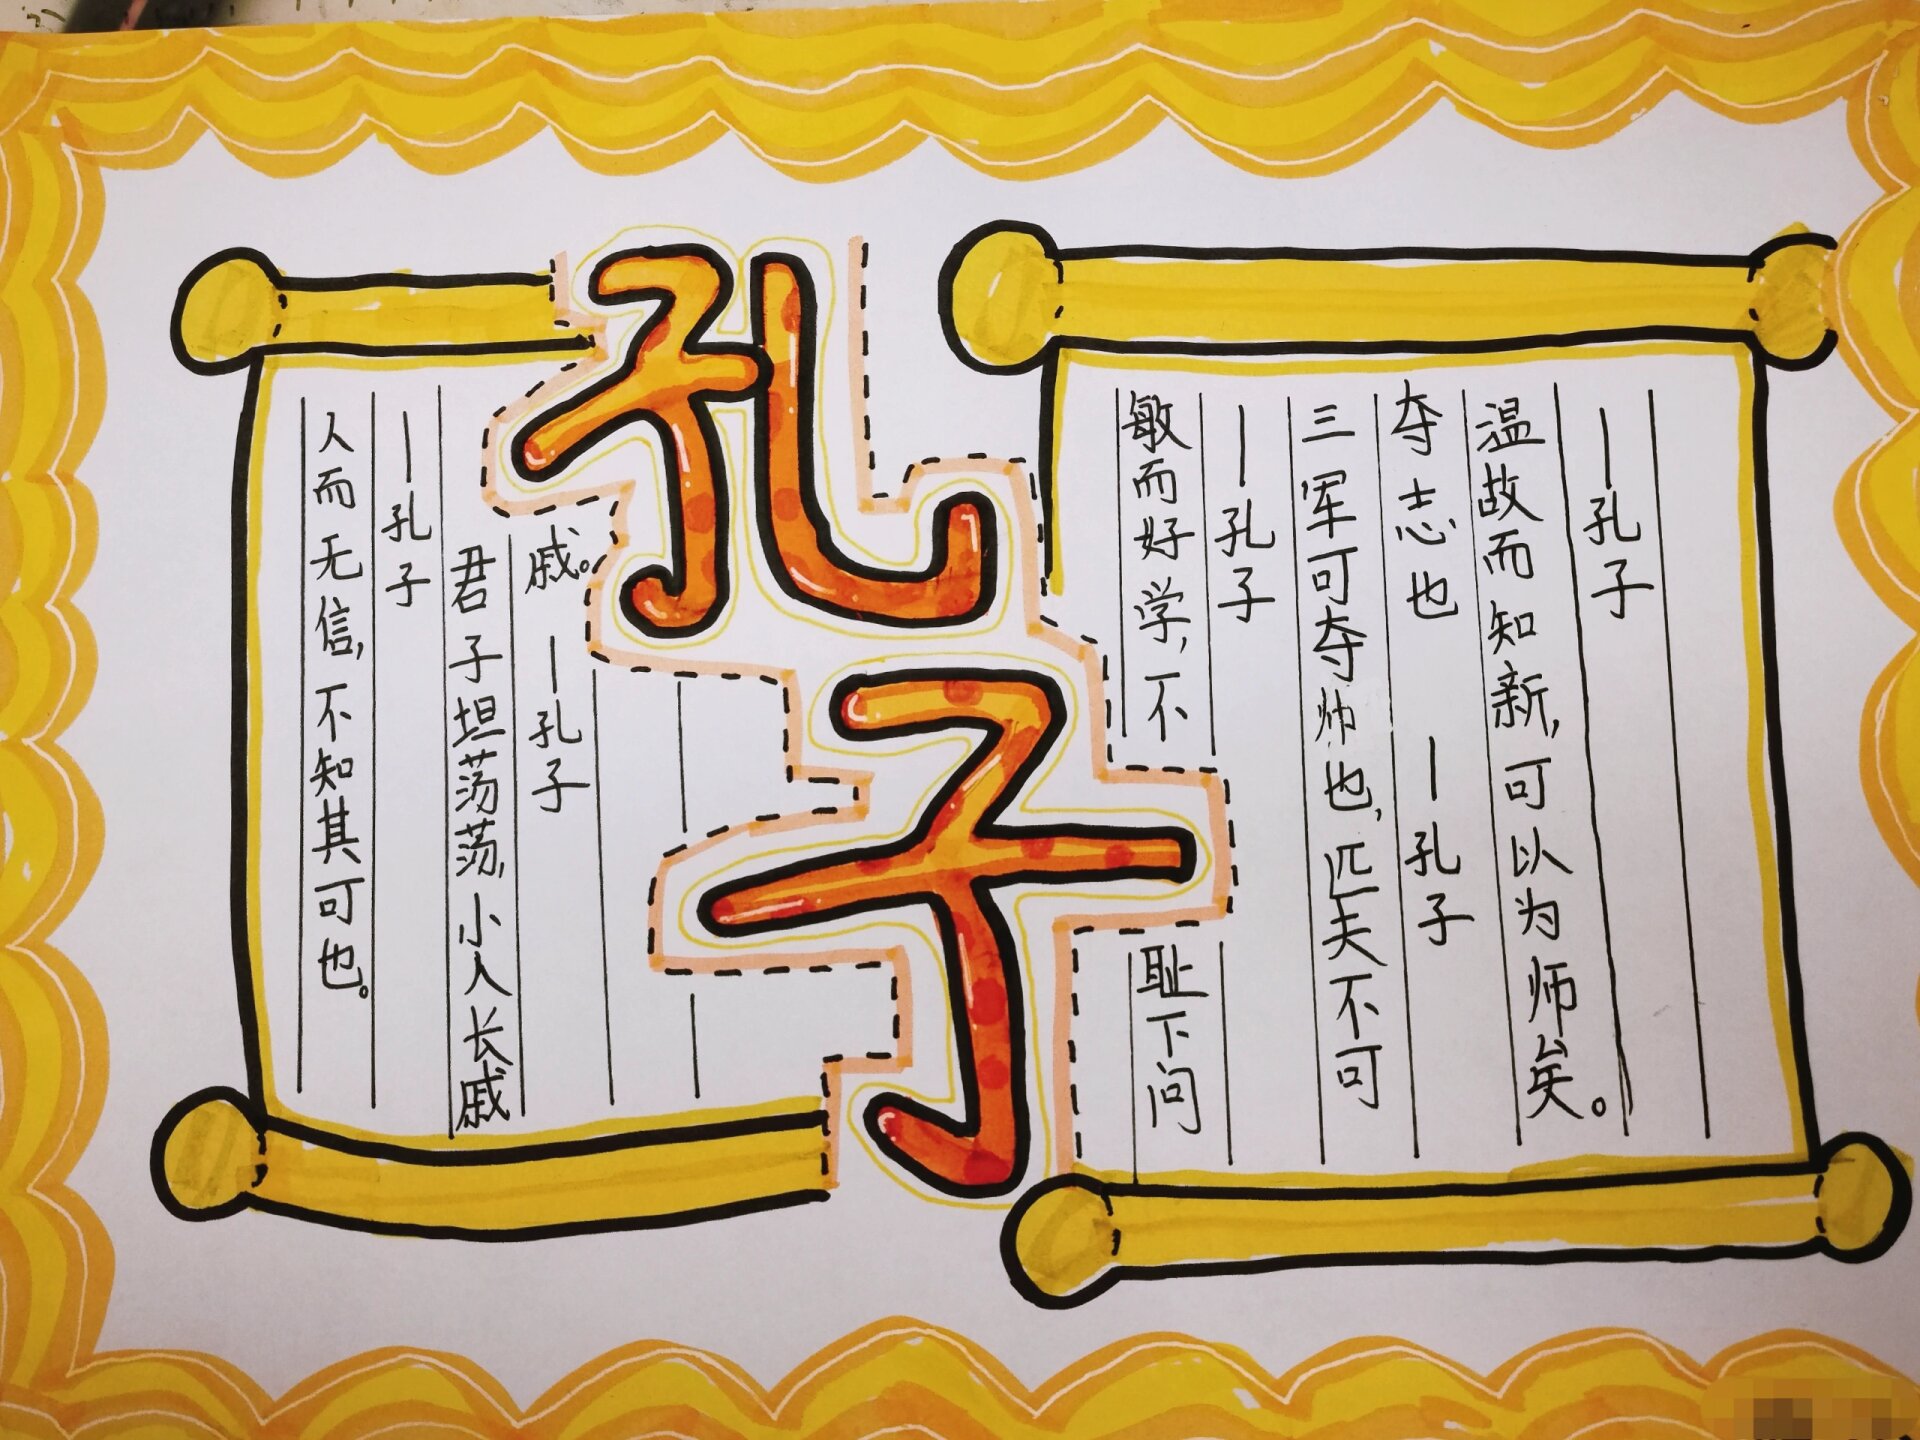 孔子
人而无信,不知其可也。
—孔子
君子坦荡荡,小人长戚
戚。—孔子
敏而好学,不耻下问
—孔子
三军可夺帅也,匹夫不可
夺志也 —孔子
温故而知新,可以为师矣。
—孔子